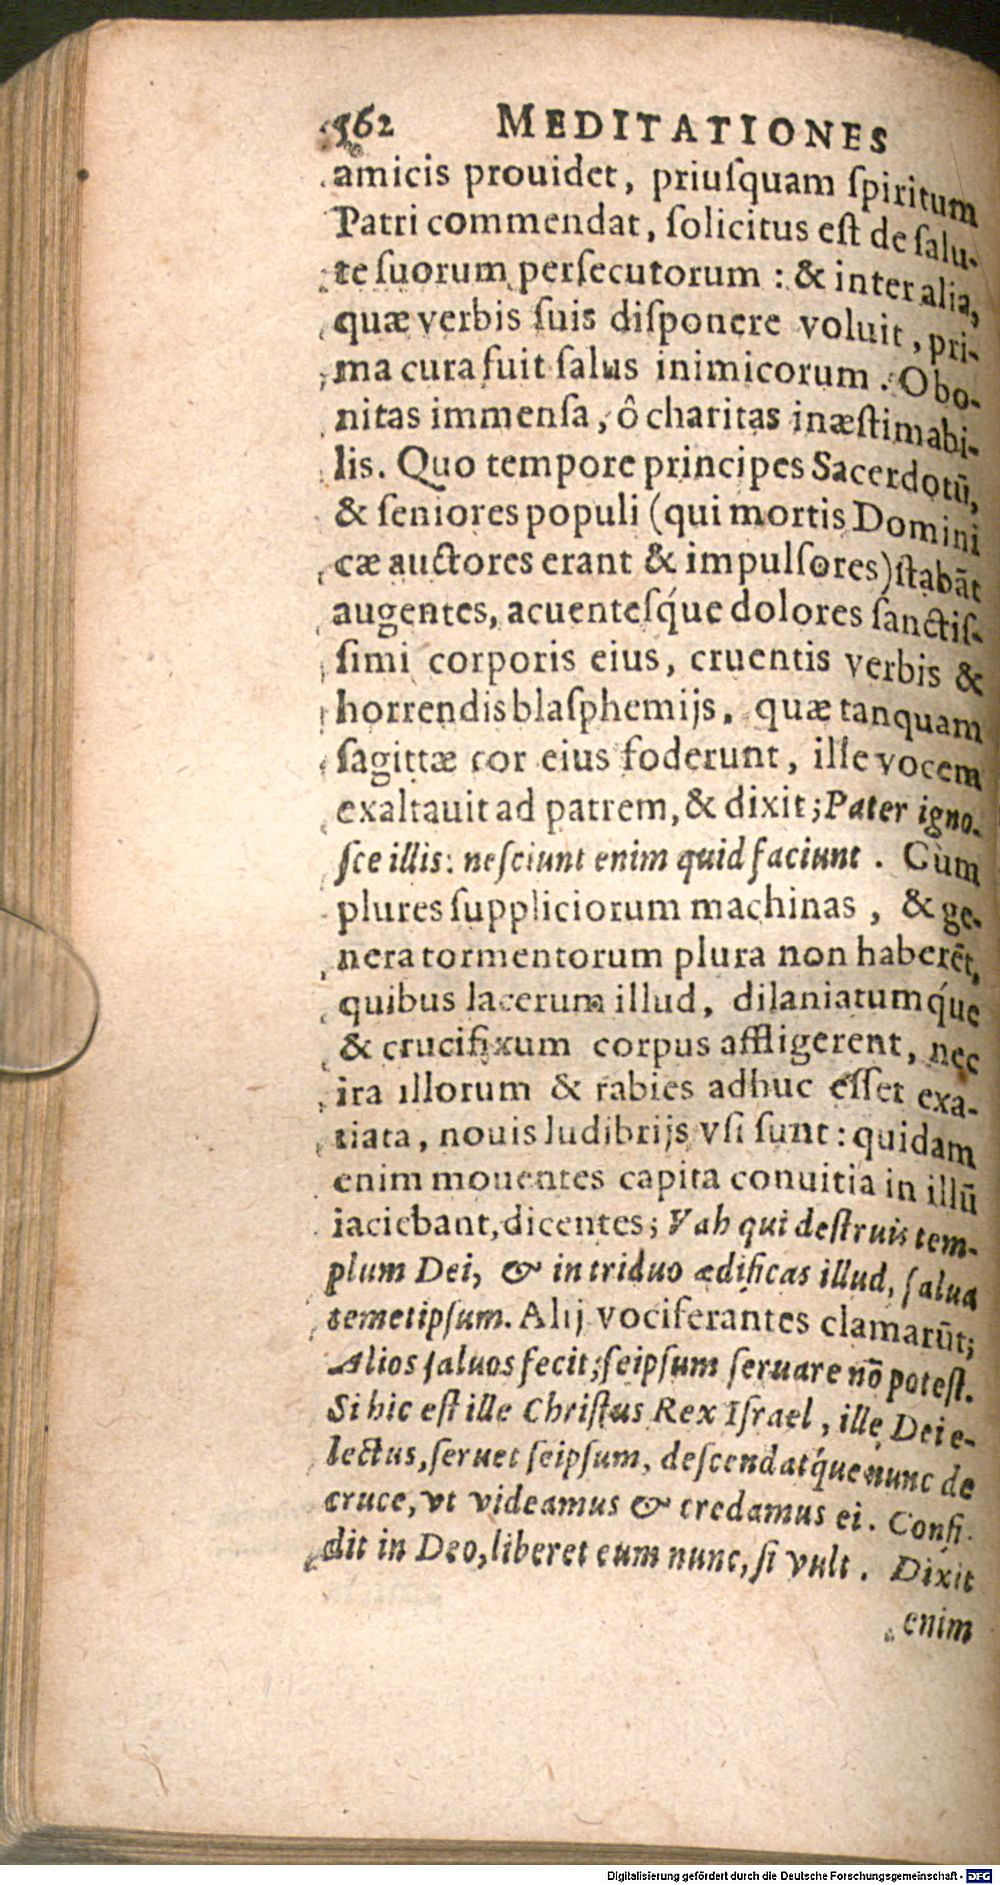 562 MEDITATIONES
amicis prouidet, priuſquam ſpiritum
Patri commendat, ſolicitus eſt de ſalu-
te ſuorum perſecutorum: & inter alia,
quæ verbis ſuis diſponere voluit, pri-
ma cura fuit ſalus inimicorum. O bo-
nitas immenſa, ô charitas inæſtimabi-
lis. Quo tempore principes Sacerdotū,
& ſeniores populi (qui mortis Domini
cæ auctores erant & impulſores) ſtabāt
augentes, acuenteſq́ue dolores ſanctiſ-
ſimi corporis eius, cruentis verbis &
horrendis blaſphemijs, quæ tanquam
ſagittæ cor eius foderunt, ille vocem
exaltauit ad patrem, & dixit; Pater igno-
ſce illis: neſciunt enim quid faciunt. Cùm
plures ſuppliciorum machinas, & ge-
nera tormentorum plura non haberēt,
quibus lacerum illud, dilaniatumq́ue
& crucifixum corpus affligerent, nec
ira illorum & rabies adhuc eſſet exa-
tiata, nouis ludibrijs vſi ſunt: quidam
enim mouentes capita conuitia in illū
iaciebant, dicentes; Vah qui deſtruis tem-
plum Dei, & in triduo ædificas illud, ſalua
temetipſum. Alij vociferantes clamarūt;
Alios ſaluos fecit; ſeipſum ſeruare nō poteſt.
Si hic eſt ille Chriſtus Rex Iſrael, ille Dei e-
lectus, ſeruet ſeipſum, deſcendatq́ue nunc de
cruce, vt videamus & credamus ei. Confi-
dit in Deo, liberet eum nunc, ſi vult. Dixit
enim
Digitalisierung gefördert durch die Deutsche Forschungsgemeinschaft - DFG